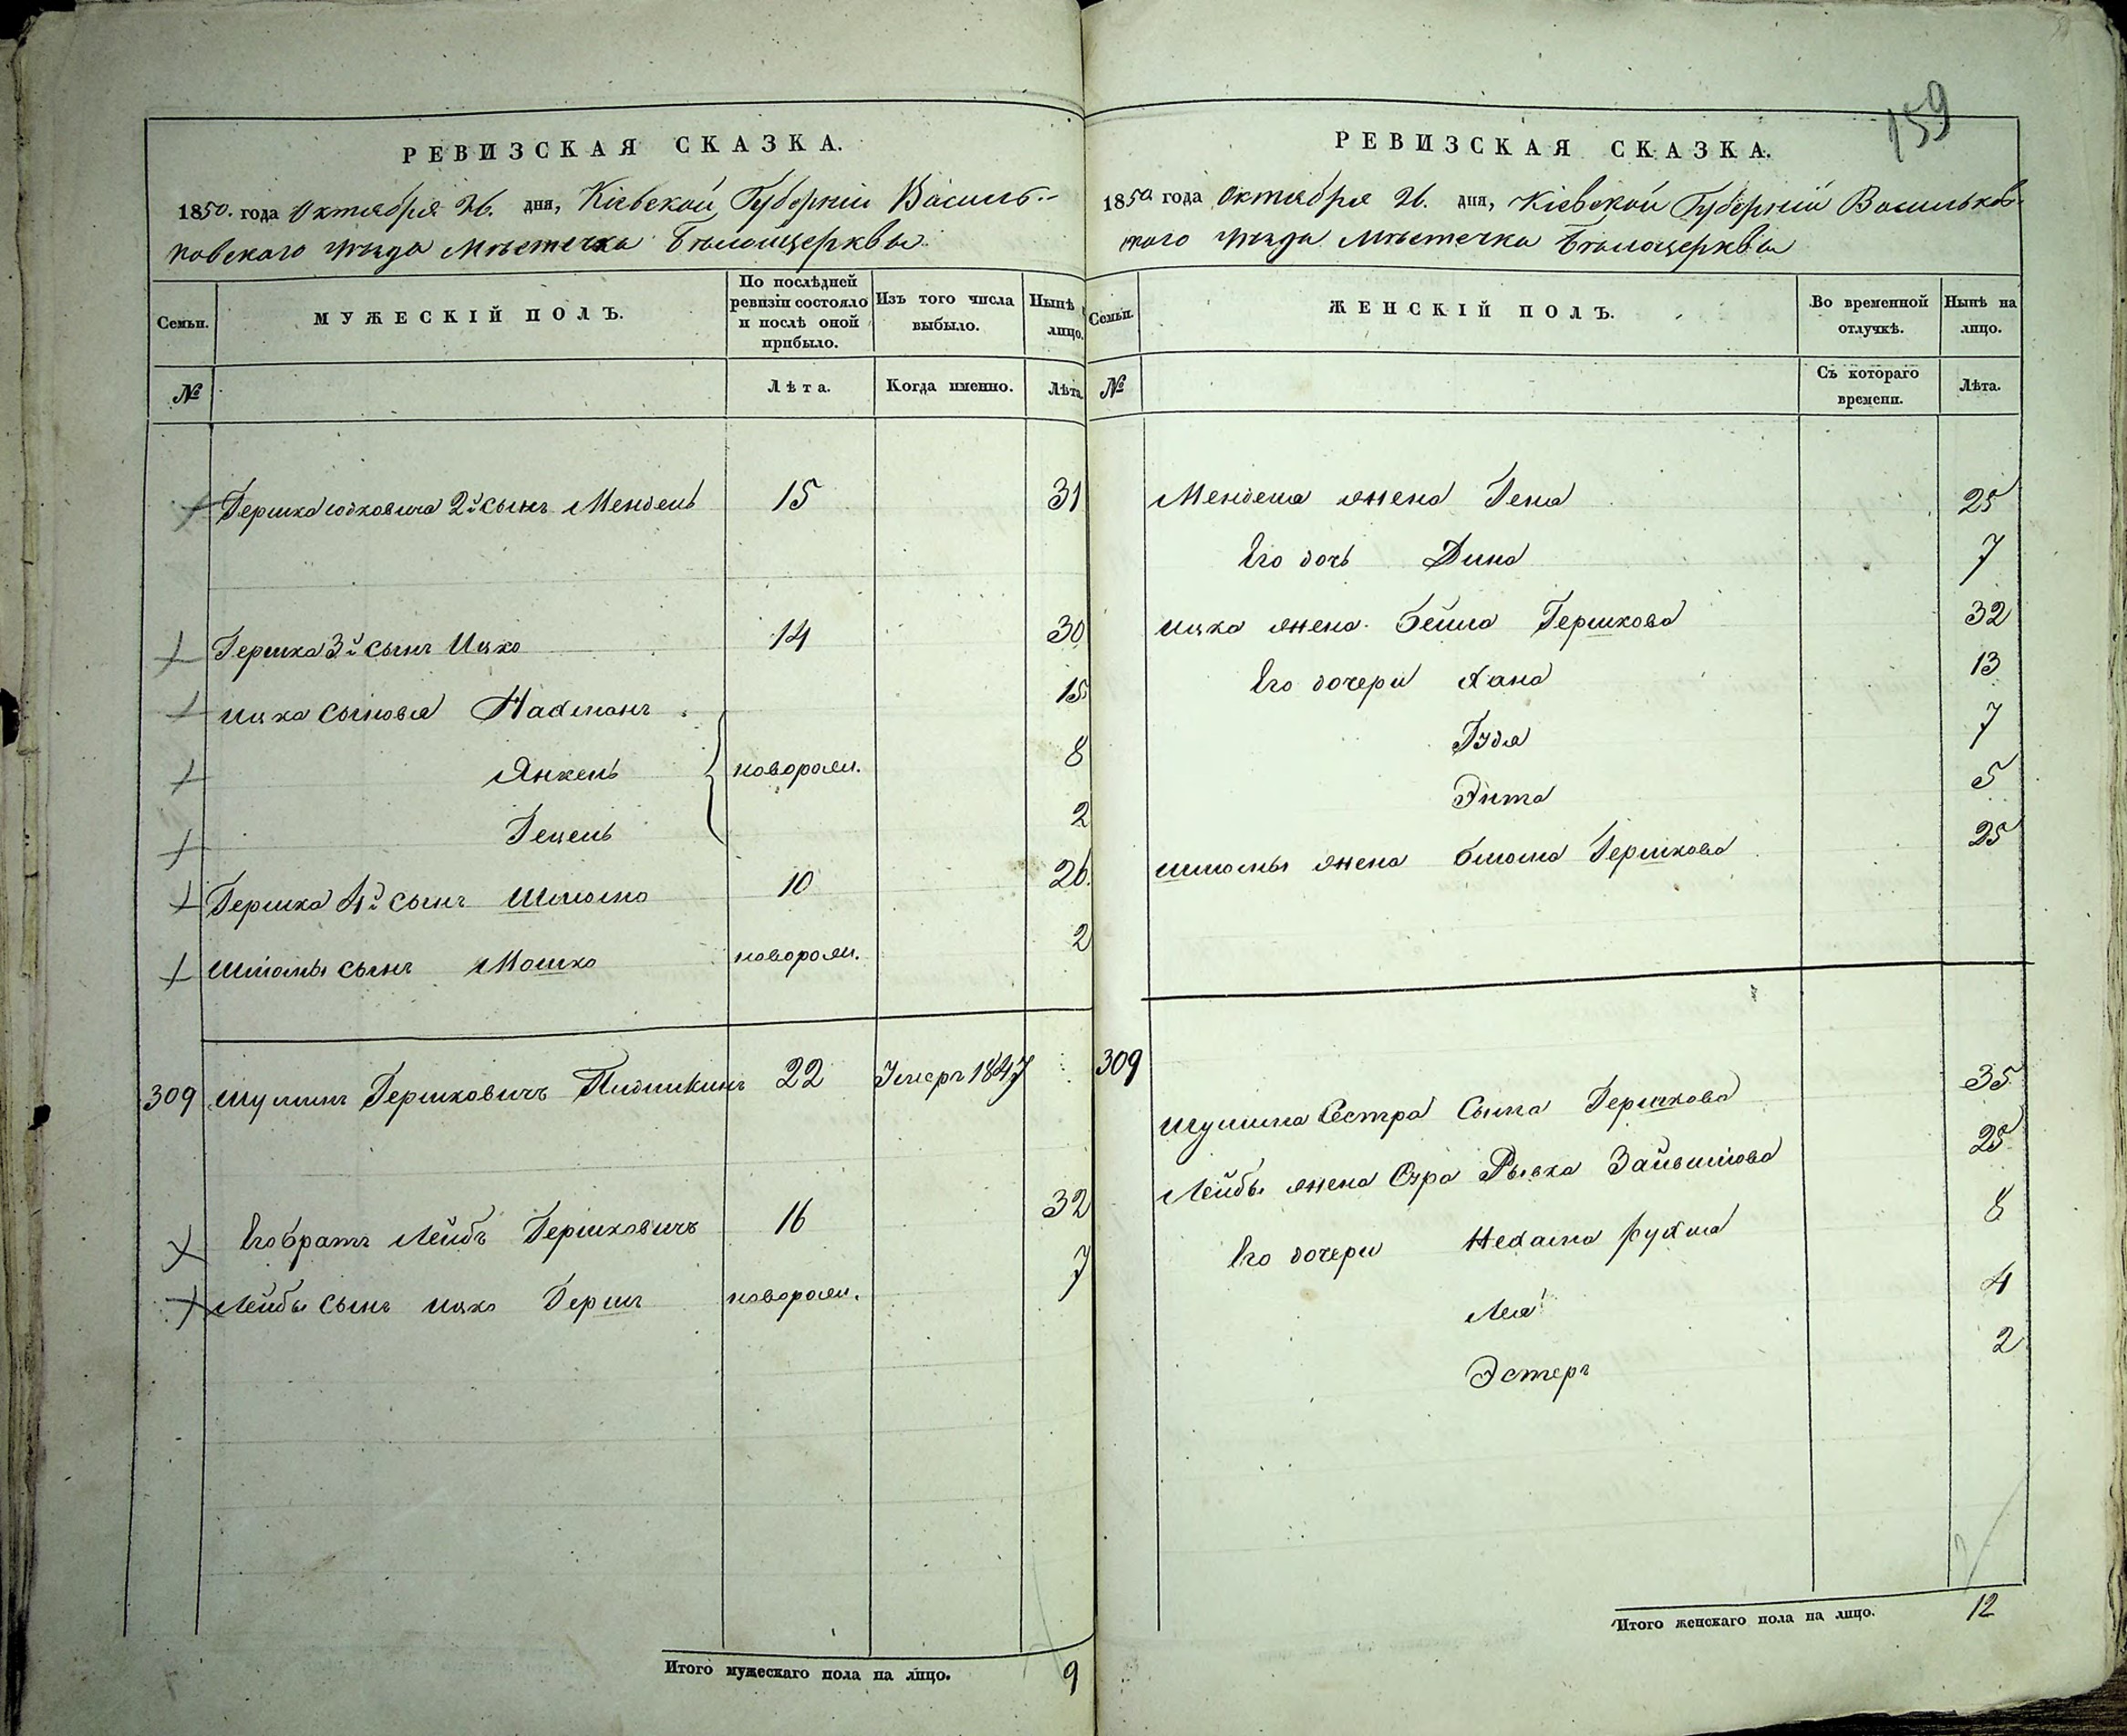 159
РЕВИЗСКАЯ СКАЗКА.
1850. года Октября 26. дня, Кіевской Губерніи Василь-
ковскаго уѣзда Мѣстечка Бѣлоцерквы
Семьи.
МУЖЕСКІЙ ПОЛЪ.
По послѣдней ревизіи состояло и послѣ оной прибыло.
Изъ того числа выбыло.
Нынѣ лицо.
№
Лѣта.
Когда именно.
Лѣта.
Гершка Юдковича 2й сынъ Мендель 15 31
Гершка 3й сынъ Ицко 14 30
Ицка сыновья Нахманъ 15
Янкель новорож. 8
Гецель 2
Гершка 4й сынъ Шлиома 10 26.
Шлиомы сынъ Мошко новорож. 2
309 Шулимъ Гершковичъ 22 Умеръ 1847
Его братъ Лейбъ Гершковичъ 16 32
Лейбы сынъ Ицко Гершъ новорож. 7
Итого мужескаго пола на лицо. 9
РЕВИЗСКАЯ СКАЗКА.
1850 года Октября 26. дня, Кіевской Губерніи Васильков-
скаго уѣзда Мѣстечка Бѣлоцерквы
Семьи.
ЖЕНСКІЙ ПОЛЪ.
Во временной отлучкѣ.
Нынѣ на лицо.
№
Съ котораго времени.
Лѣта.
Менделя жена Геня 25
Его дочь Дина 7
Ицка жена Бейла Гершкова 32
Его дочери Хана 13
Гудя 7
Энта 5
Шлиомы жена Блюма Гершкова 25
309
Шулима Сестра Сима Гершкова 35
Лейбы жена Сура Рывка 25
Его дочери Нехама Рухля 8
Лея 4
Эстеръ 2
Итого женскаго пола на лицо. 12